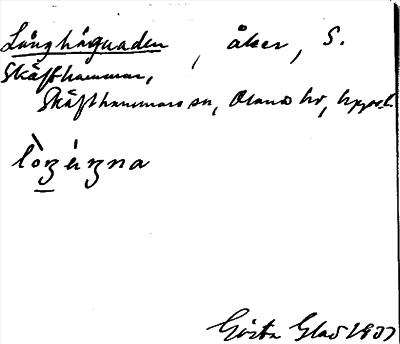 Långhägnaden, åker, S.
Skäfthammar,
Skäfthammars sn, Olands hd, Uppsal.
Gösta Glad 1937